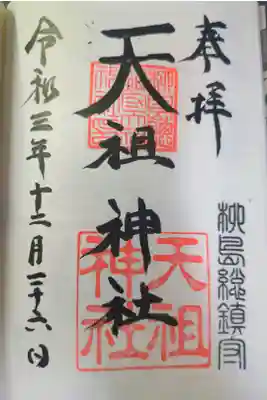 奉拝
柳島総鎮守
天祖神社
天祖
神社
令和三年十二月二十六日